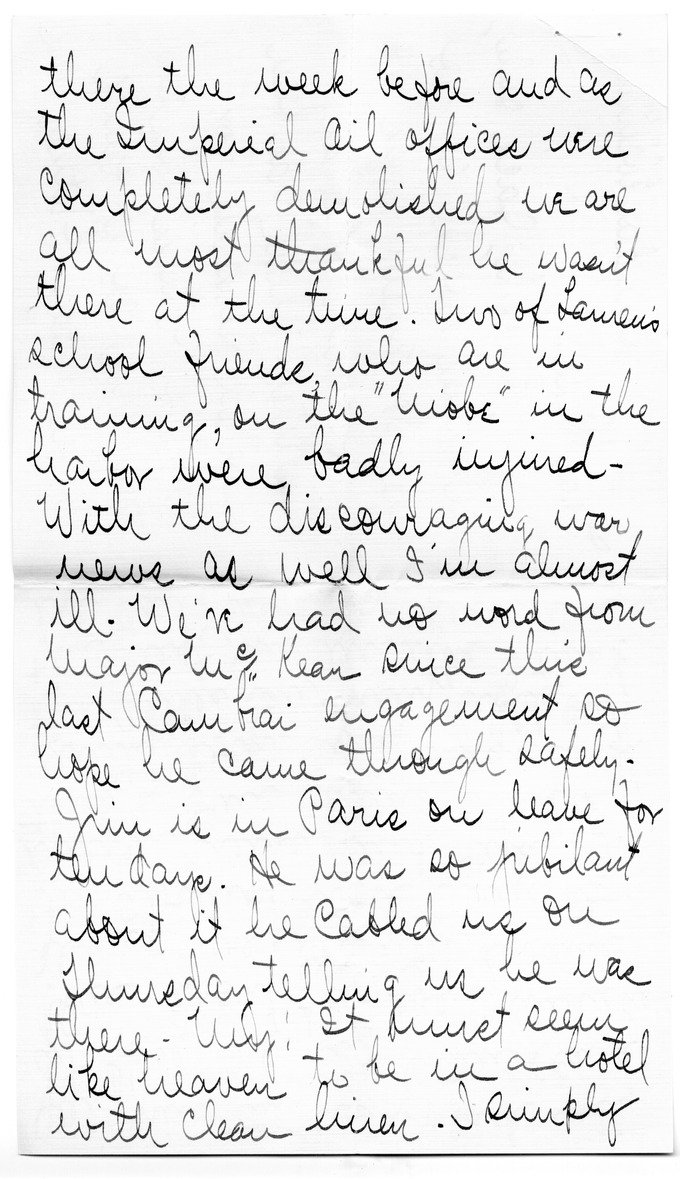 there the week before and as
the Imperial Oil offices were
completely demolished we are
all most thankful he wasn't
there at the time. Two of Lauren's
school friends, who are in
training, on the "Niobe" in the
harbor were badly injured -
With the discouraging war
news as well I'm almost
ill. We've had no word from
Major McKean since this
last Cambrai engagement so
hope he came through safely.
Jim is in Paris on leave for
ten days. He was so jubilant
about it he cabled us on
Thursday telling us he was
there - My! It must seem
like heaven to be in a hotel
with clean linen. I simply